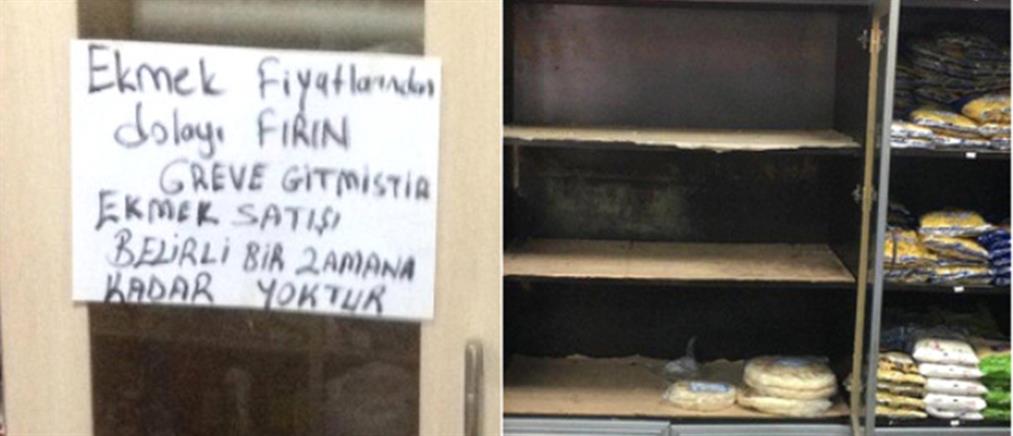 Ekmek Fiyatlarından
dolayı FIRIN
GREVE GİTMİSTİR
EKMEK SATIŞI
BELİRLİ BİR ZAMANA
KADAR YOKTUR